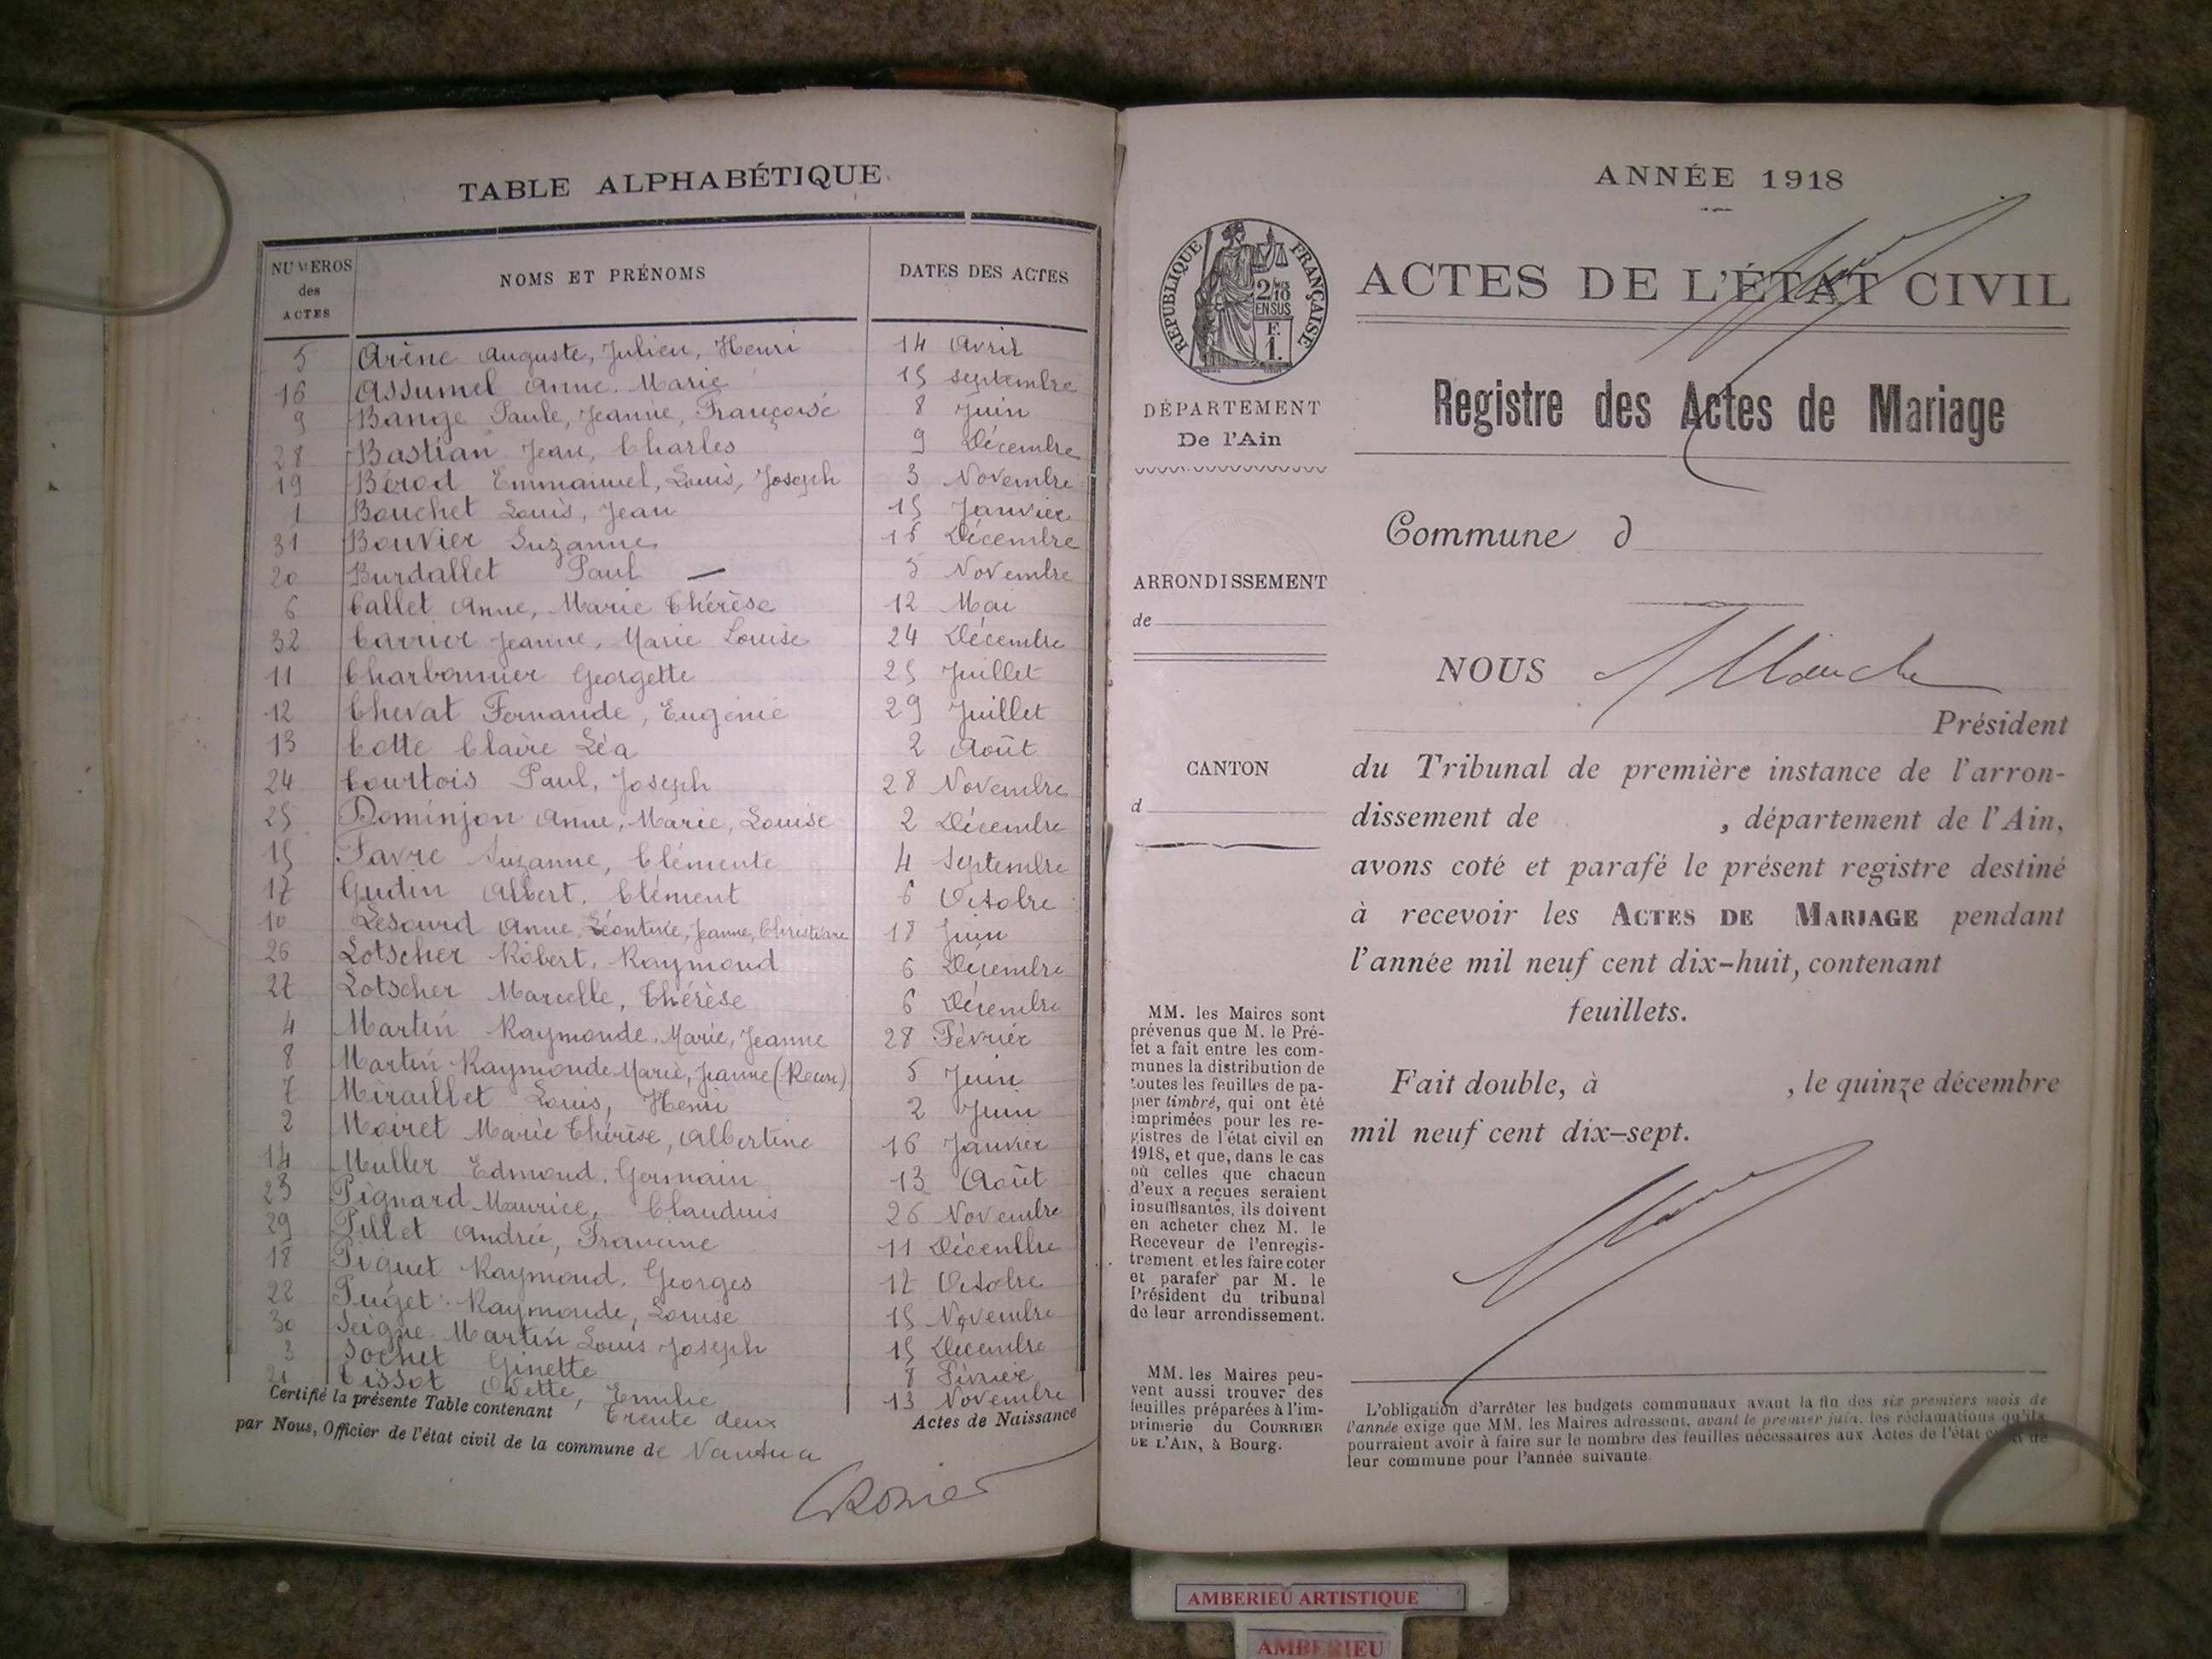 TABLE ALPHABÉTIQUE
NUMEROS des ACTES NOMS ET PRÉNOMS DATES DES ACTES
5 Arène Auguste, Julien, Henri 14 Avril
16 Assumel Anne. Marie 15 septembre
9 Bange Paule, Jeanne, Françoise 8 Juin
28 Bastian Jean, Charles 9 Décembre
19 Bérod Emmanuel, Louis, Joseph 3 Novembre
1 Bouchet Louis, Jean 15 Janvier
31 Bouvier Suzanne 16 Décembre
20 Burdallet Paul — 5 Novembre
6 Callet Anne, Marie Thérèse 12 Mai
32 Carrier Jeanne, Marie Louise 24 Décembre
11 Charbonnier Georgette 25 Juillet
12 Chevat Fernande, Eugénie 29 Juillet
13 Cotte Claire Léa 2 Août
24 Courtois Paul, Joseph 28 Novembre
25 Dominjon Anne, Marie, Louise 2 Décembre
15 Favre Suzanne, Clémente 4 Septembre
17 Gudin Albert, Clément 6 Octobre
10 Lesourd Anne, Léontine, Jeanne, Christiane 18 Juin
26 Lotscher Robert, Raymond 6 Décembre
27 Lotscher Marcelle, Thérèse 6 Décembre
4 Martin Raymonde, Marie, Jeanne 28 Février
8 Martin Raymonde Marie, Jeanne (Recon) 5 Juin
7 Miraillet Louis, Henri 2 Juin
2 Moiret Marie Thérèse, Albertine 16 Janvier
14 Muller Edmond, Germain 13 Août
23 Pignard Maurice, Claudius 26 Novembre
29 Pillet Andrée, Francine 11 Décembre
18 Piquet Raymond, Georges 17 Octobre
22 Puget Raymonde, Louise 15 Novembre
30 Seigne Martin Louis Joseph 15 Décembre
3 Sochet Ginette 8 Février
21 Tissot Odette, Emilie 13 Novembre
Certifié la présente Table contenant Trente deux Actes de Naissance
par Nous, Officier de l'état civil de la commune de Nantua
ANNÉE 1918
RÉPUBLIQUE FRANÇAISE
2/10 EN SUS
F. 1.
ACTES DE L'ÉTAT CIVIL
Registre des Actes de Mariage
DÉPARTEMENT
De l'Ain
Commune d
ARRONDISSEMENT
de
NOUS
Président
CANTON
d
du Tribunal de première instance de l'arron-
dissement de , département de l'Ain,
avons coté et parafé le présent registre destiné
à recevoir les ACTES DE MARIAGE pendant
l'année mil neuf cent dix-huit, contenant
feuillets.
Fait double, à , le quinze décembre
mil neuf cent dix-sept.
MM. les Maires sont
prévenus que M. le Pré-
fet a fait entre les com-
munes la distribution de
toutes les feuilles de pa-
pier timbré, qui ont été
imprimées pour les re-
gistres de l'état civil en
1918, et que, dans le cas
où celles que chacun
d'eux a reçues seraient
insuffisantes, ils doivent
en acheter chez M. le
Receveur de l'enregis-
trement et les faire coter
et parafer par M. le
Président du tribunal
de leur arrondissement.
MM. les Maires peu-
vent aussi trouver des
feuilles préparées à l'im-
primerie du COURRIER
DE L'AIN, à Bourg.
L'obligation d'arrêter les budgets communaux avant la fin des six premiers mois de
l'année exige que MM. les Maires adressent, avant le premier juin, les réclamations qu'ils
pourraient avoir à faire sur le nombre des feuilles nécessaires aux Actes de l'état civil de
leur commune pour l'année suivante.
AMBERIEU ARTISTIQUE
AMBERIEU